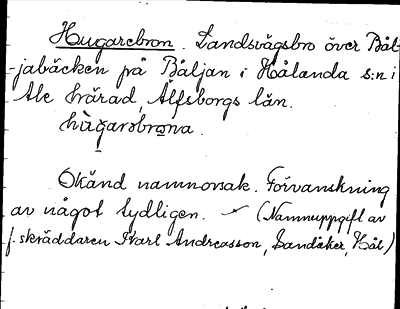 Hugarebron. Landsvägsbro över Bål-
-jabäcken på Båljan i Hålanda s:n i
Ale härad, Älfsborgs län.
hùgarəbrona.
Okänd namnorsak. Förvanskning
av något tydligen. – (Namnuppgift av
f. skräddaren Karl Andreasson, Sandåker, Hål)